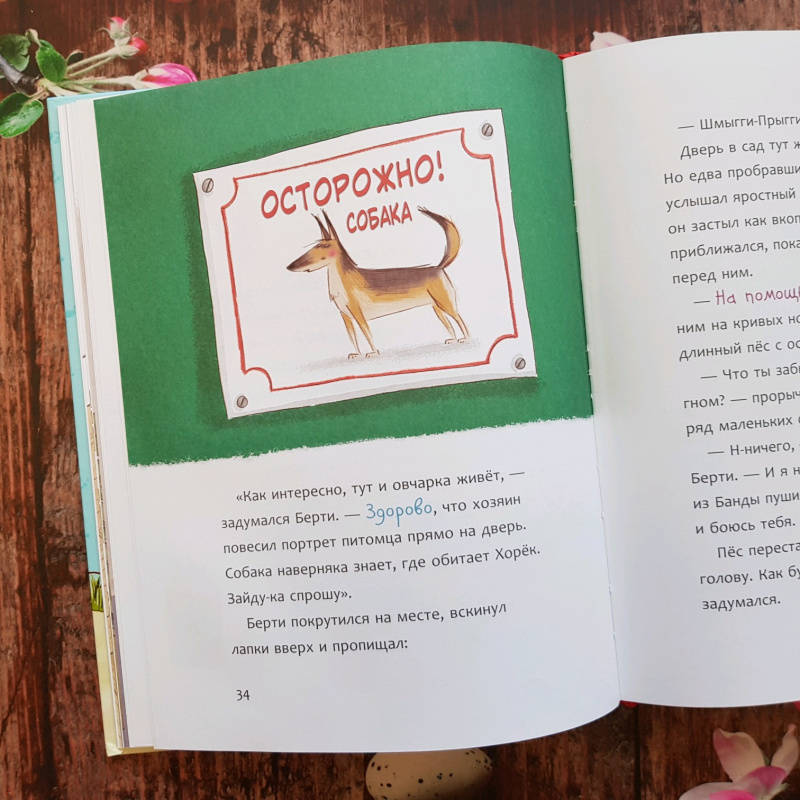 ОСТОРОЖНО!
СОБАКА
«Как интересно, тут и овчарка живёт, —
задумался Берти. — Здорово, что хозяин
повесил портрет питомца прямо на дверь.
Собака наверняка знает, где обитает Хорёк.
Зайду-ка спрошу».
Берти покрутился на месте, вскинул
лапки вверх и пропищал:
34
— Шмыгги-Прыгги
Дверь в сад тут
Но едва
услышал яростный
он застыл как
приближался,
перед ним.
— На
ним на кривых
длинный пёс с
— Что ты
гном? —
ряд маленьких
— Н-ничего,
Берти. — И я
из Банды
и боюсь тебя.
Пёс
голову. Как
задумался.